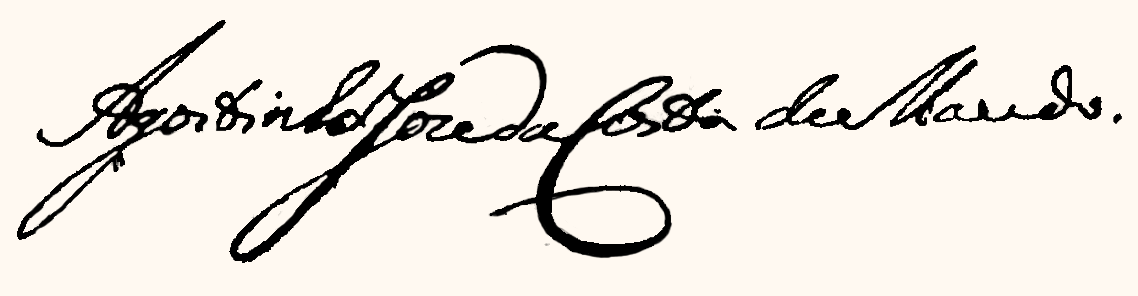 Agostinho Joze da Costa de Macedo.